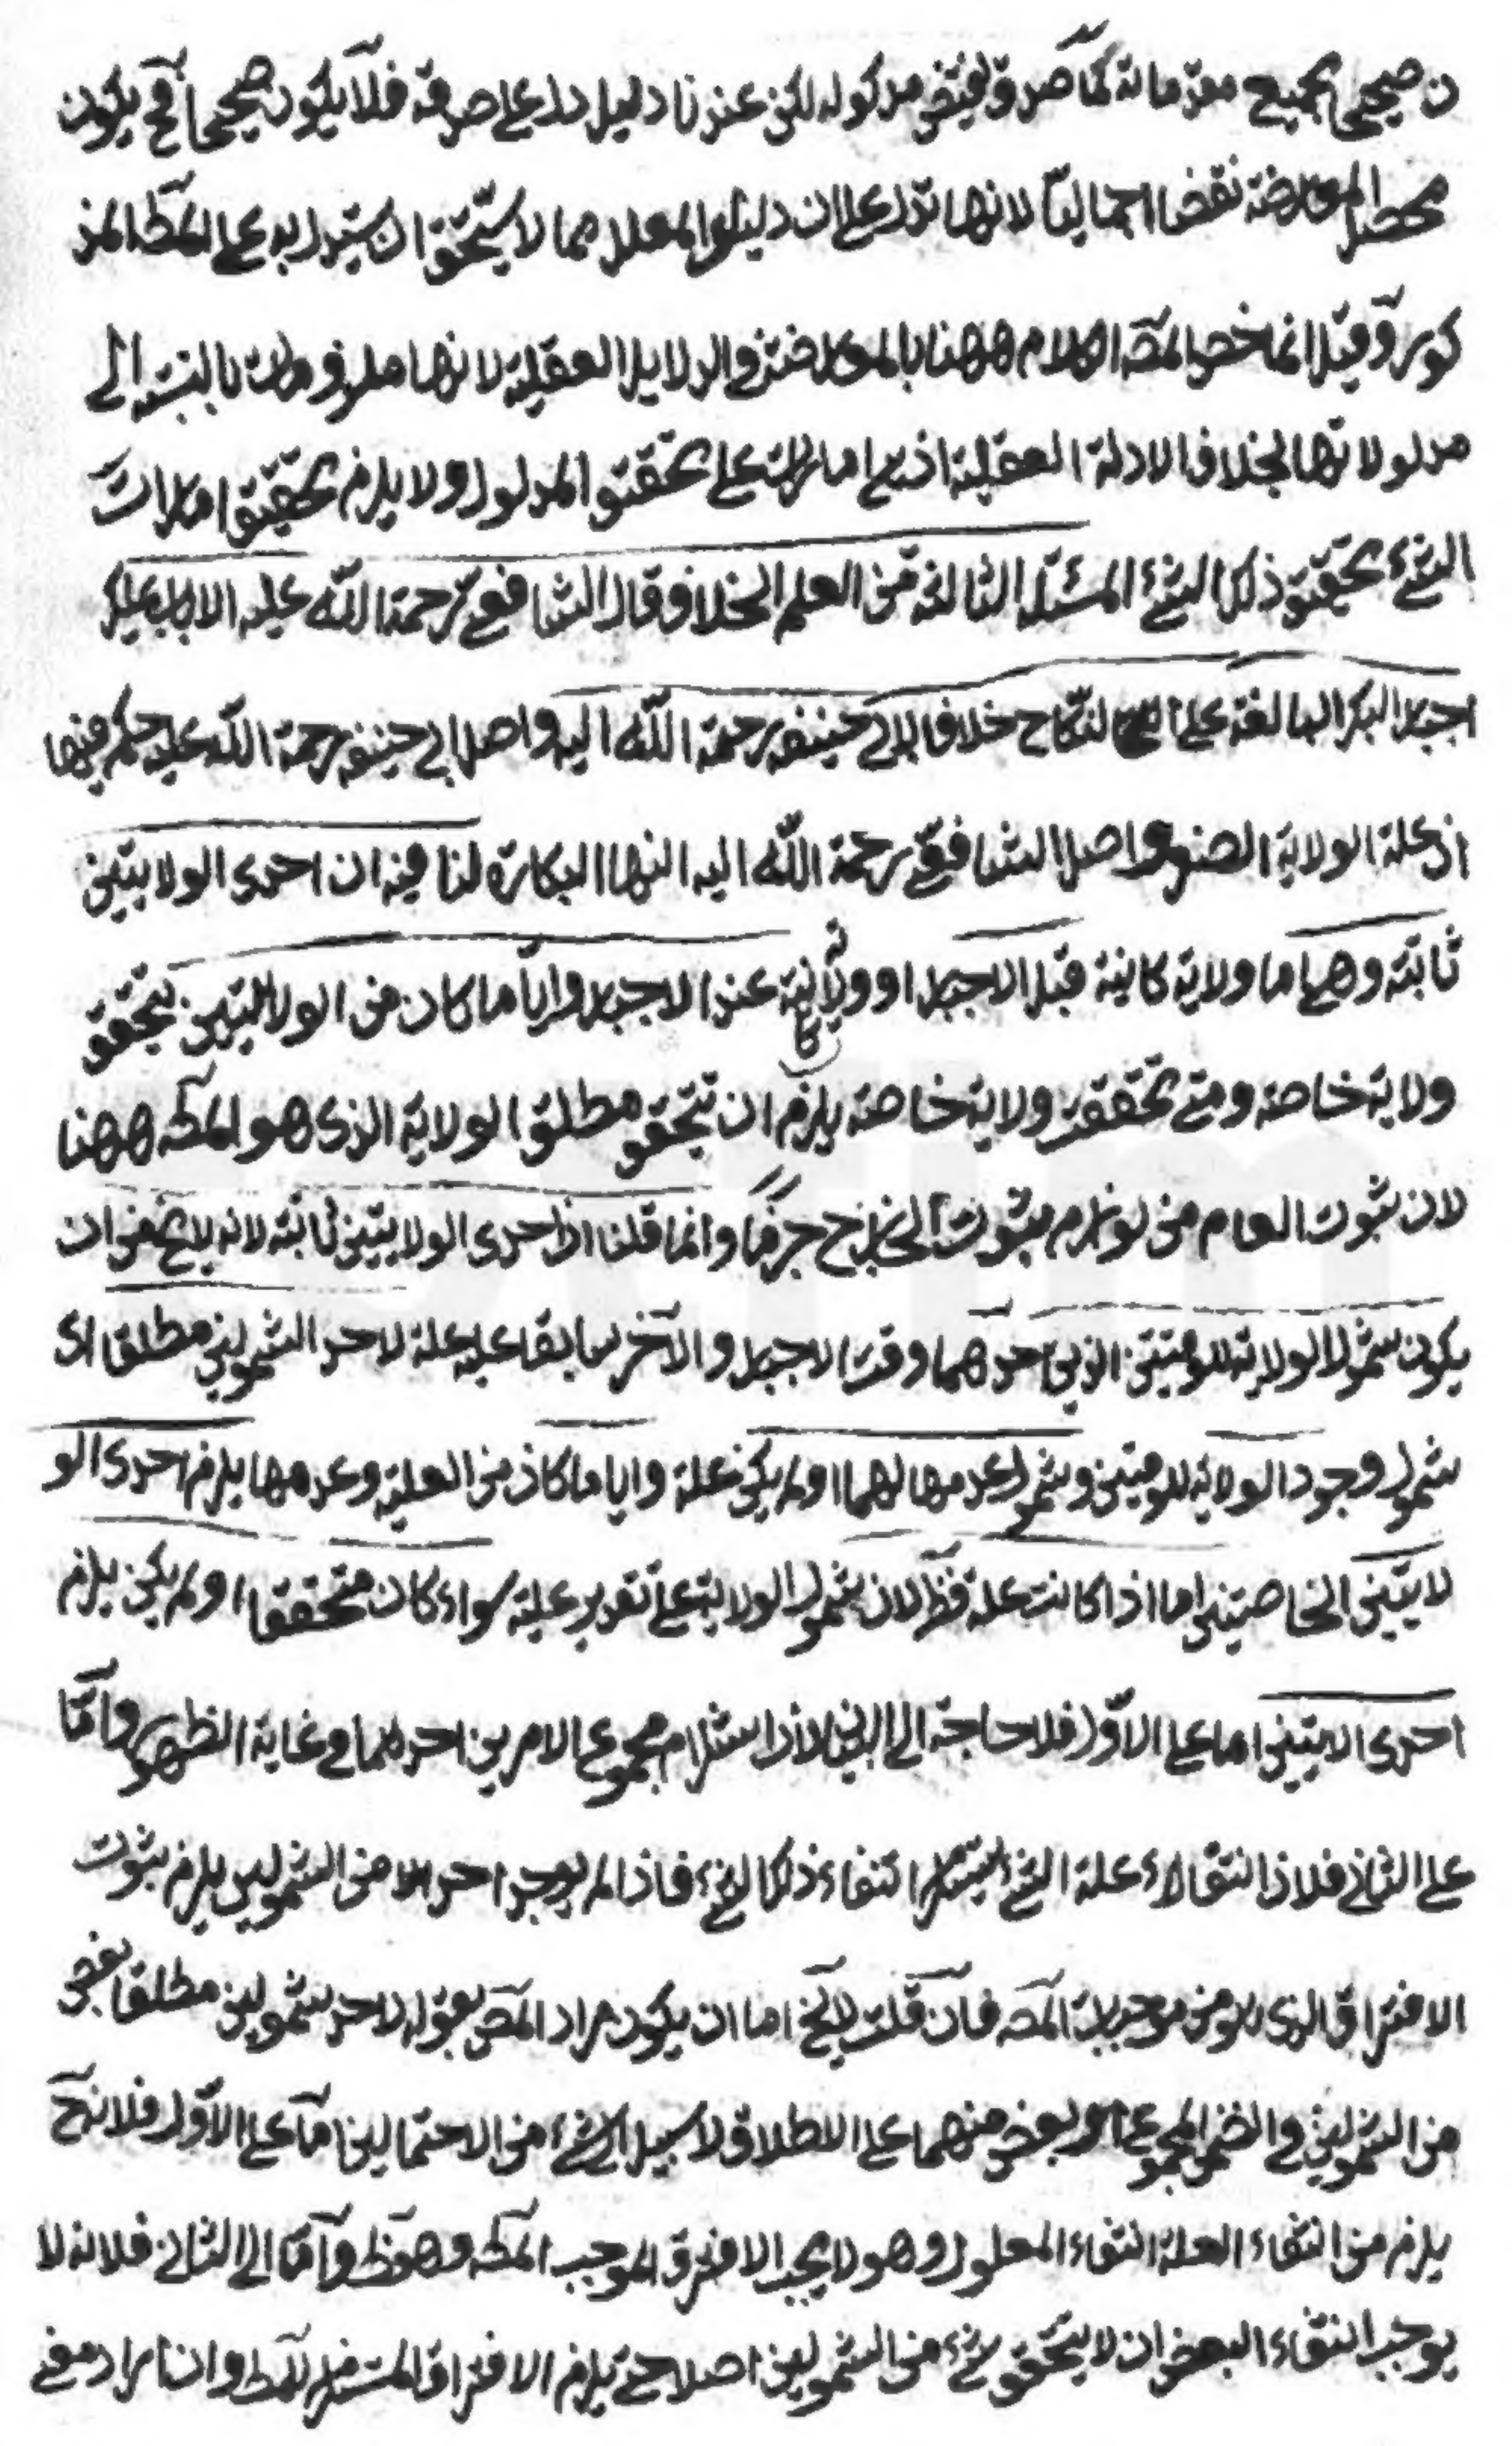 ن صحيحى بجميع مقدماته كما صدق يقتضى مدلوله لكن عندنا دليل دل على صدقه فلا يكون صحيحا فح يكون
محصل المعارضة نقضا اجماليا لانها تدل على ان دليل المعلل مما لا يستحق ان يستدل به على المط المذ
كور وقيل انما خص المصـ الكلام ههنا بالمعارضة فى الدلايل العقلية لانها ملزومات بالنسبة الى
مدلولاتها بخلاف الادلة العقلية اذ هى امارات على تحقق المدلول ولا يلزم تحقيق امارات
الشئ تحقق ذلك الشئ المسئلة الثالثة من العلم الخلاف قال الشافعى رحمة الله عليه الاب يملك
اجبار البكر البالغة على النكاح خلافا لابى حنيفه رحمة الله اليه واصل ابى حنيفه رحمة الله عليه حكم فيها
اذ علة الولاية الصغر واصل الشافعى رحمة الله اليه انها البكارة لنا فيه ان احدى الولايتين
ثابتة وهى اما ولاية كاينة قبل الاجبار او ولاية كاينة عند الاجبار وايا ما كان من الولايتين يتحقق
ولاية خاصه ومتى تحققت ولاية خاصه يلزم ان تتحقق مطلق الولاية الذى هو المطـ ههنا
لان ثبوت العام من لوازم ثبوت الخاص جزما وانما قلنا ان احدى الولايتين ثابته لانه لا يخ من ان
يكون شمول الولاية للوقتين الذين احدهما وقت الاجبار والآخر سابقا عليه علة لاحد الشمولين مطلقا اى
شمول وجود الولاية للوقتين وشمول عدمها لهما او لم يكن علة وايا ما كان من العلية وعدمها يلزم احدى الو
لايتين الخاصتين اما اذا كانت علة فظ لان شمول الولاية على تقدير علية سواء كان متحققا او لم يكن يلزم
احدى الايتين اما على الاول فلا حاجة الى البيان اذ استلزام مجموع الامرين احدهما فى غاية الظهور واما
على الثانى فلان انتفاء علة الشئ يستلزم انتفاء ذلك الشئ فاذا لم يوجد احد من الشمولين يلزم ثبوت
الافتراق الذى هو من موجبات المصـ فان قلت لا يخ اما ان يكون مراد المصـ بقوله لاحد شمولين مطلقا بعض
من الشمولين فى ضمن المجموع او بعض منهما على الاطلاق لا سبيل الى شئ من الاحتمالين اما على الاول فلانه ح
يلزم من انتفاء العلة انتفاء المعلول وهو لا يجب الافتراق الموجب المطـ وهو ظ واما الى الثانى فلانه لا
يوجب انتفاء البعض ان لا يتحقق شئ من الشمولين اصلا حتى يلزم الافتراق المستلزم للمط وان اراد معنى